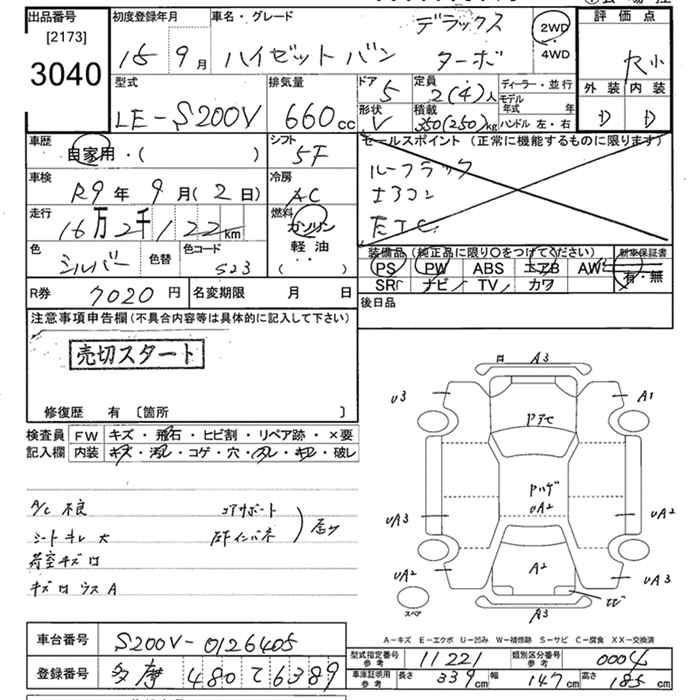 出品番号
[2173]
3040
初度登録年月
15 9月
車名・グレード
ハイゼットバン
デラックス
ターボ
2WD
4WD
評価点
外装 内装
D D
型式
LE-S200V
排気量
660cc
ドア
5
定員
2(4)人
ディーラー・並行
モデル年式 年
ハンドル 左・右
形状
V
積載
350(250)kg
車歴
自家用・( )
シフト
5F
セールスポイント (正常に機能するものに限ります)
ルーフラック
エアコン
ETC
車検
R9年 9月(2日)
冷房
AC
走行
16万2千122km
燃料
ガソリン
軽油
( )
色
シルバー
色替
色コード
S23
装備品 (純正品に限り○をつけてください)
PS PW ABS エアB AW
SR ナビ TV カワ
新車保証書
有・無
R券 7020円
名変期限 月 日
後日品
注意事項申告欄(不具合内容等は具体的に記入して下さい)
売切スタート
修復歴 有 〔箇所 〕
検査員記入欄
FW キズ・飛石・ヒビ割・リペア跡・×要
内装 キズ・汚レ・コゲ・穴・スレ・キレ・破レ
A/C 不良
シートキレ 大
荷室キズ
コアサポート
A3
U3
A1
Pアセ
Pハゲ
UA2
UA3
UA2
UA2
A2
UA3
A3
スペア
A-キズ E-エクボ U-凹み W-補修跡 S-サビ C-腐食 XX-交換済
車台番号 S200V-0126405
登録番号 多摩 480 て 6389
型式指定番号 参考 11221
類別区分番号 参考 0004
車庫証明用 参考 長さ 339cm 幅 147cm 高さ 185cm